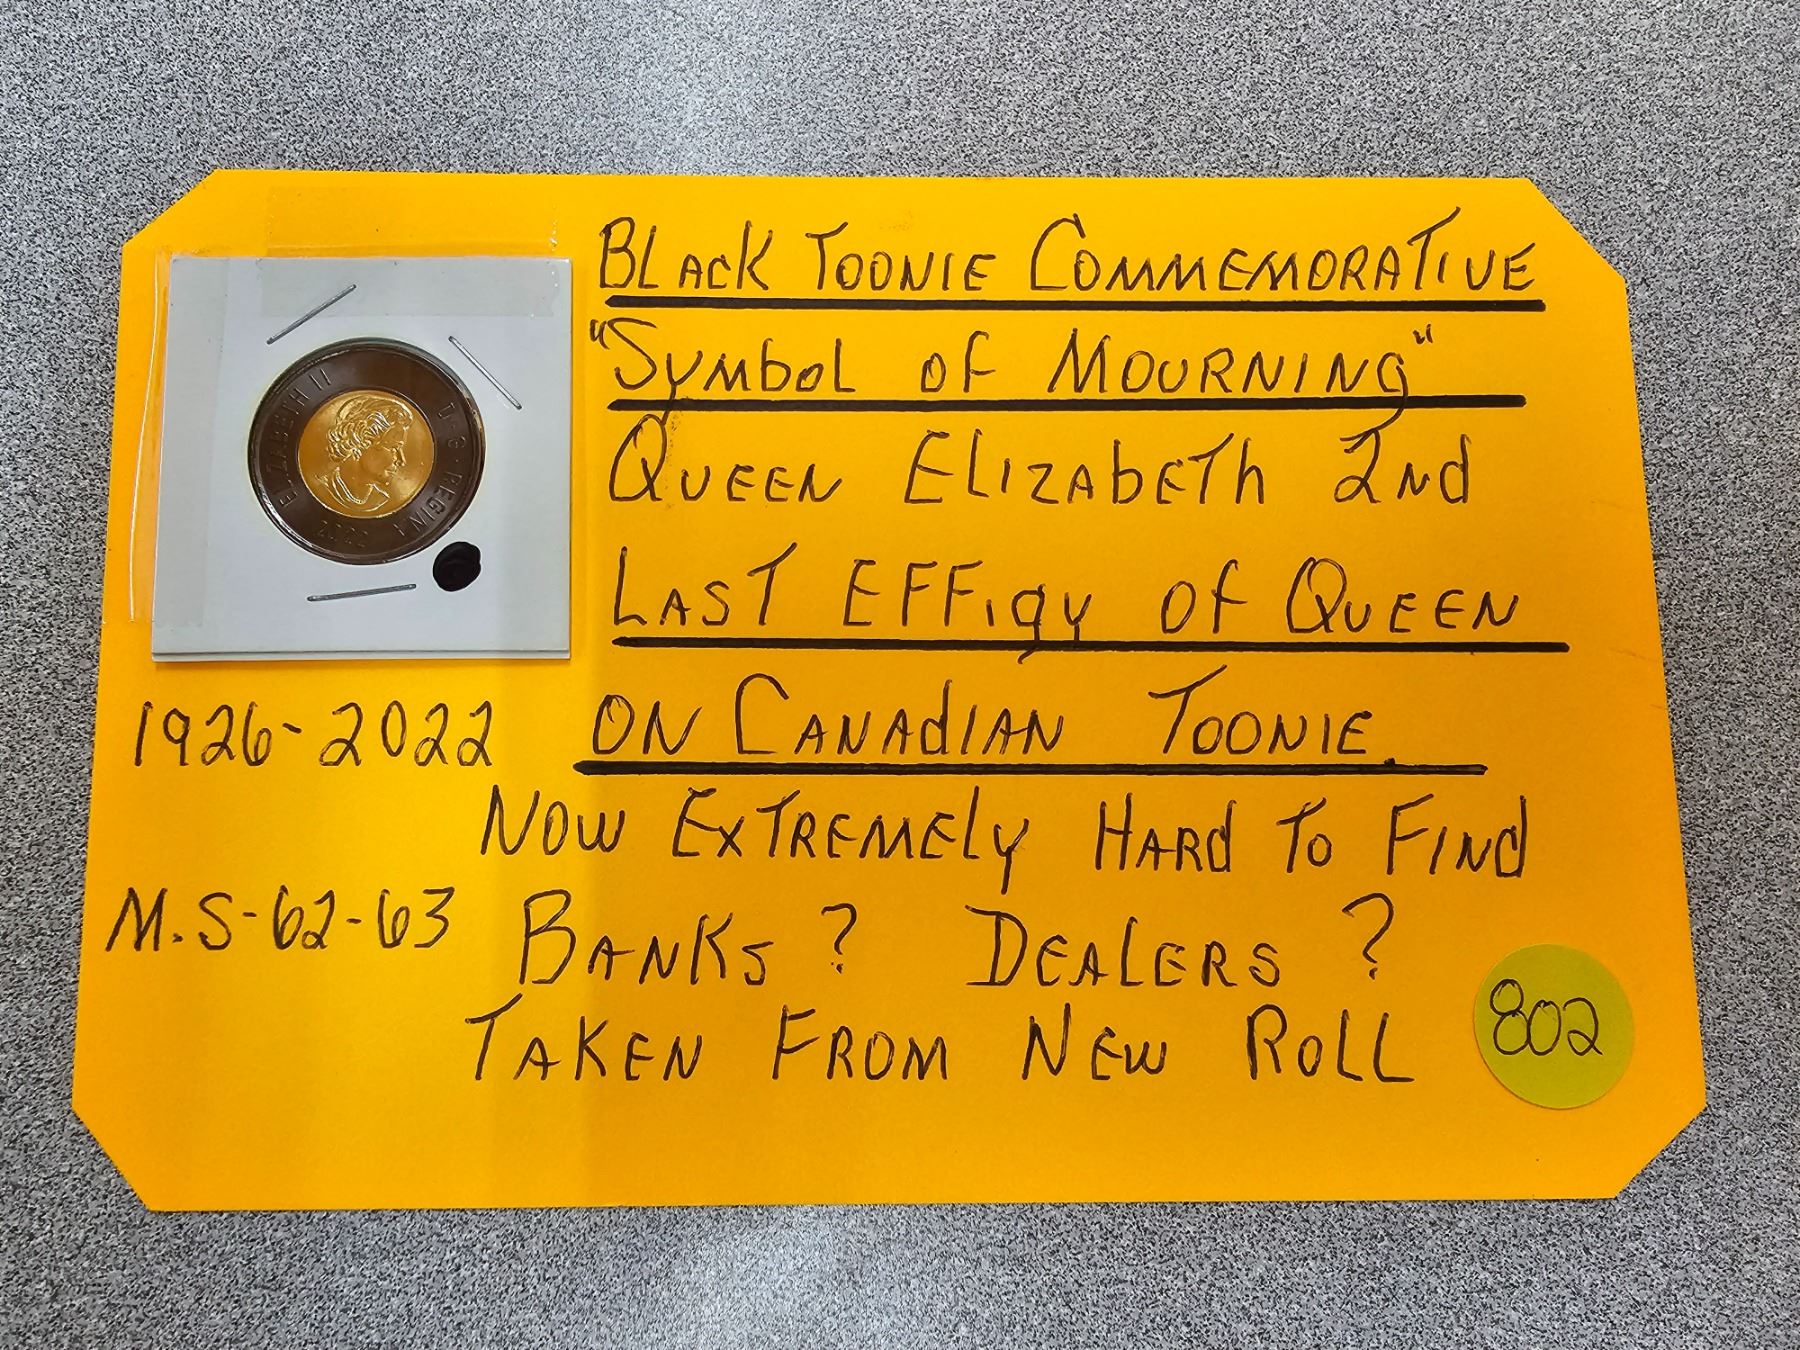 BLACK TOONIE COMMEMORATIVE
"SYMBOL OF MOURNING"
QUEEN ELIZABETH 2ND
LAST EFFIGY OF QUEEN
ON CANADIAN TOONIE
1926-2022
NOW EXTREMELY HARD TO FIND
M.S-62-63
BANKS? DEALERS?
TAKEN FROM NEW ROLL
802
ELIZABETH II D·G·REGINA
2022